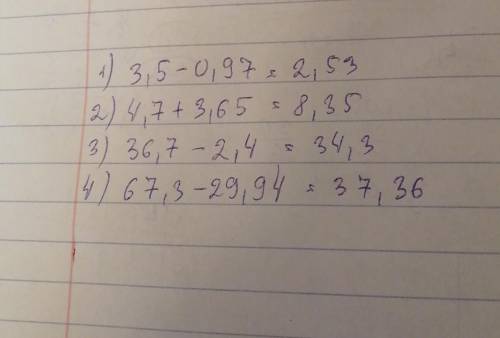 1) 3,5 - 0,97 = 2,53
2) 4,7 + 3,65 = 8,35
3) 36,7 - 2,4 = 34,3
4) 67,3 - 29,94 = 37,36